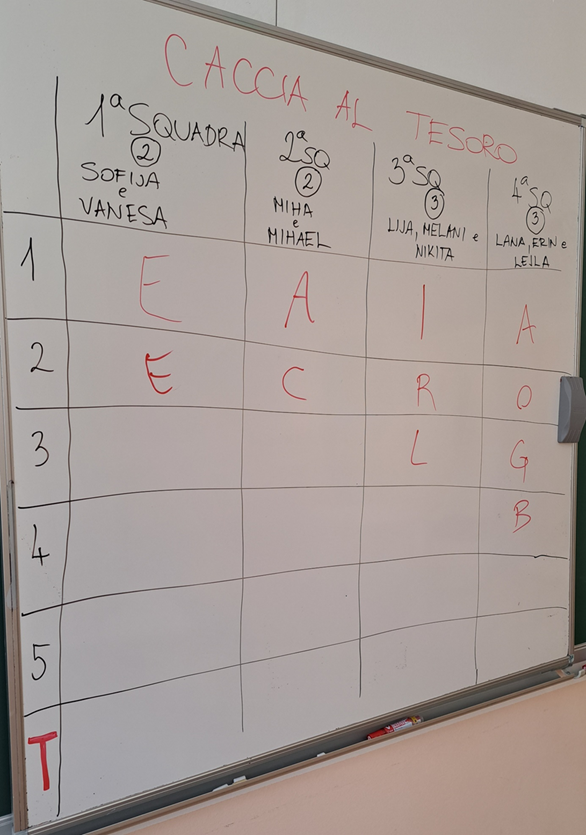 CACCIA AL TESORO
1ª SQUADRA
2
SOFIJA
e
VANESA
2ª SQ
2
MIHA
e
MIHAEL
3ª SQ
3
LIJA, MELANI e
NIKITA
4ª SQ
3
LANA, ERIN e
LEJLA
1 E A I A
2 E C R O
3 L G
4 B
5
T